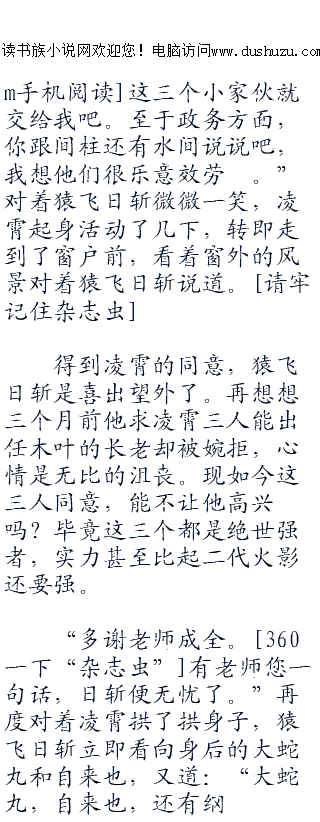 读书族小说网欢迎您！电脑访问www.dushuzu.com
m手机阅读]这三个小家伙就
交给我吧。至于政务方面，
你跟间柱还有水间说说吧，
我想他们很乐意效劳　。”
对着猿飞日斩微微一笑，凌
霄起身活动了几下，转即走
到了窗户前，看着窗外的风
景对着猿飞日斩说道。[请牢
记住杂志虫]
得到凌霄的同意，猿飞
日斩是喜出望外了。再想想
三个月前他求凌霄三人能出
任木叶的长老却被婉拒，心
情是无比的沮丧。现如今这
三人同意，能不让他高兴
吗？毕竟这三个都是绝世强
者，实力甚至比起二代火影
还要强。
“多谢老师成全。[360
一下“杂志虫”]有老师您一
句话，日斩便无忧了。”再
度对着凌霄拱了拱身子，猿
飞日斩立即看向身后的大蛇
丸和自来也，又道：“大蛇
九，自来也，还有纲